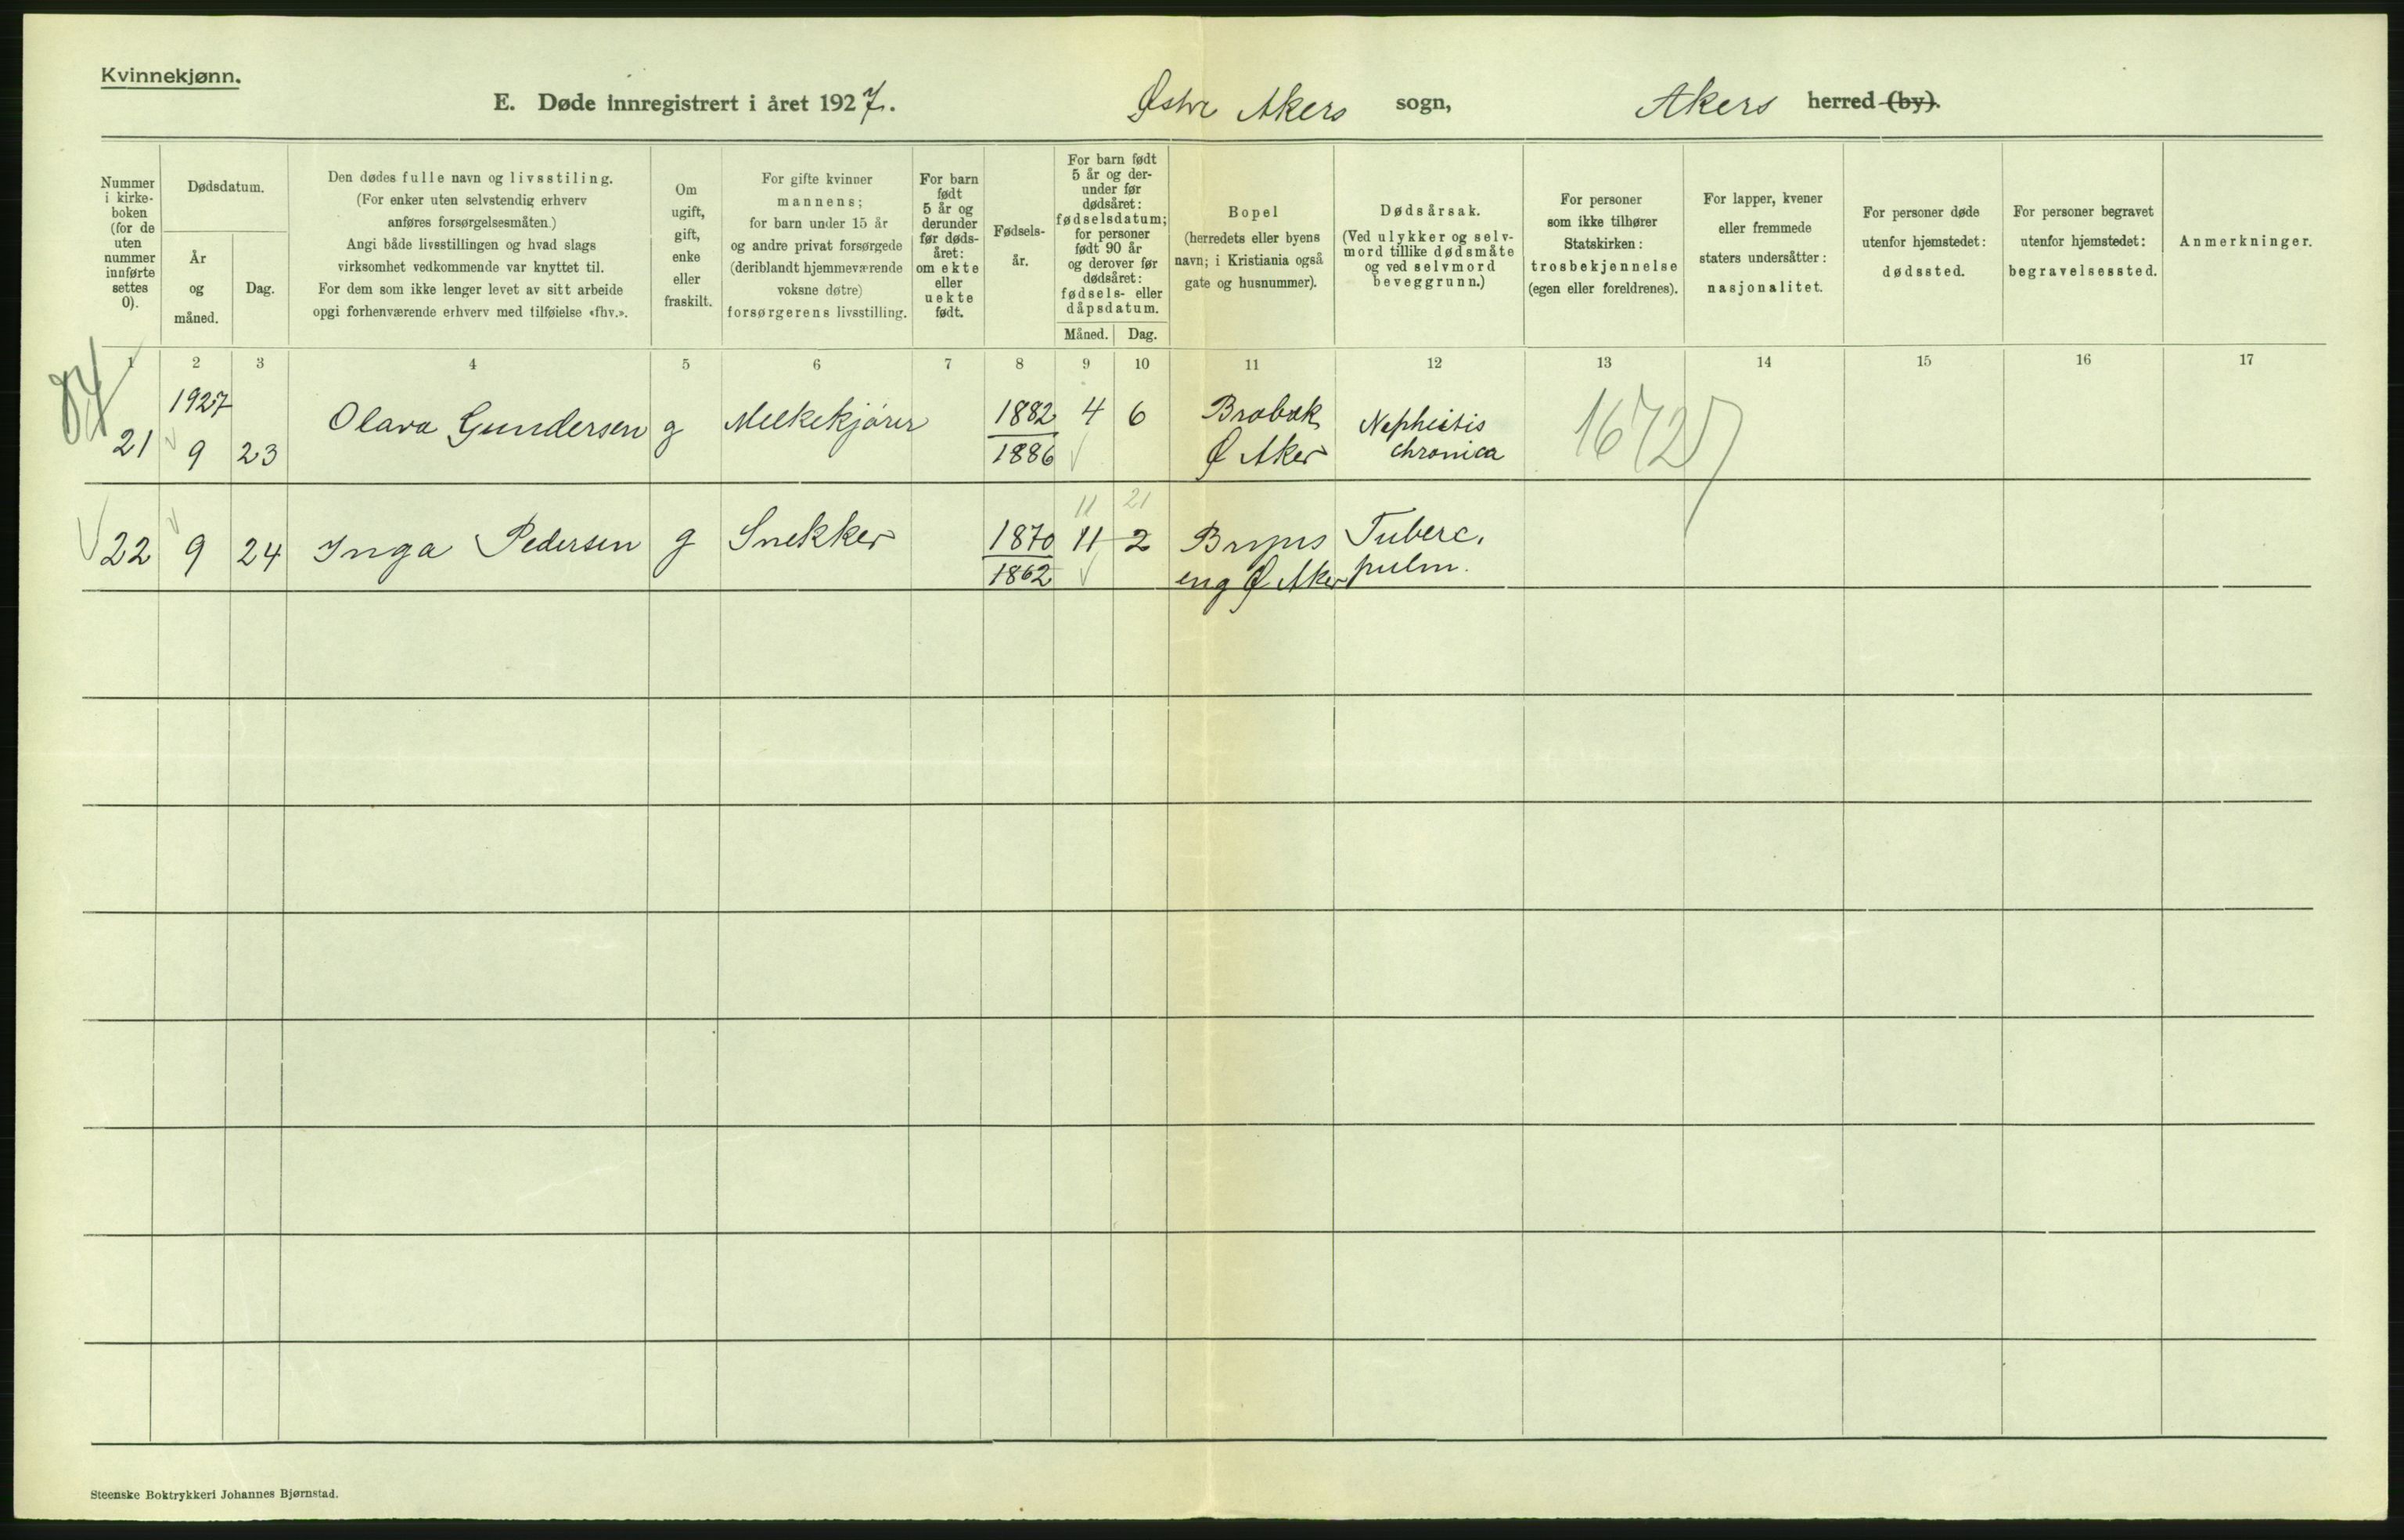 Kvinnekjønn.
E. Døde innregistrert i året 1927. Østre Akers sogn, Akers herred (by).
Nummer i kirke- boken (for de uten nummer innførte settes 0).
Dødsdatum.
År og måned.
Dag.
Den dødes fulle navn og livsstiling.
(For enker uten selvstendig erhverv
anføres forsørgelsesmåten.)
Angi både livsstillingen og hvad slags
virksomhet vedkommende var knyttet til.
For dem som ikke lenger levet av sitt arbeide
opgi forhenværende erhverv med tilføielse «fhv.».
Om
ugift,
gift,
enke
eller
fraskilt.
For gifte kvinner
mannens;
for barn under 15 år
og andre privat forsørgede
(deriblandt hjemmeværende
voksne døtre)
forsørgerens livsstilling.
For barn
født
5 år og
derunder
før døds-
året:
om ekte
eller
uekte
født.
Fødsels-
år.
For barn født
5 år og der-
under før
dødsåret:
fødselsdatum;
for personer
født 90 år
og derover før
dødsåret:
fødsels- eller
dåpsdatum.
Måned. Dag.
Bopel
(herredets eller byens
navn; i Kristiania også
gate og husnummer).
Dødsårsak.
(Ved ulykker og selv-
mord tillike dødsmåte
og ved selvmord
beveggrunn.)
For personer
som ikke tilhører
Statskirken:
trosbekjennelse
(egen eller foreldrenes).
For lapper, kvener
eller fremmede
staters undersåtter:
nasjonalitet.
For personer døde
utenfor hjemstedet:
dødssted.
For personer begravet
utenfor hjemstedet:
begravelsessted.
Anmerkninger.
1 2 3 4 5 6 7 8 9 10 11 12 13 14 15 16 17
84
1927
21 9 23 Olava Gundersen g Melkekjører 1882 4 6 Brobæk Nephritis 16727
1886 Ø Aker chronica
11 21
22 9 24 Inga Pedersen g Snekker 1870 11 2 Bryns Tuberc.
1862 eng Ø Aker pulm.
Steenske Boktrykkeri Johannes Bjørnstad.